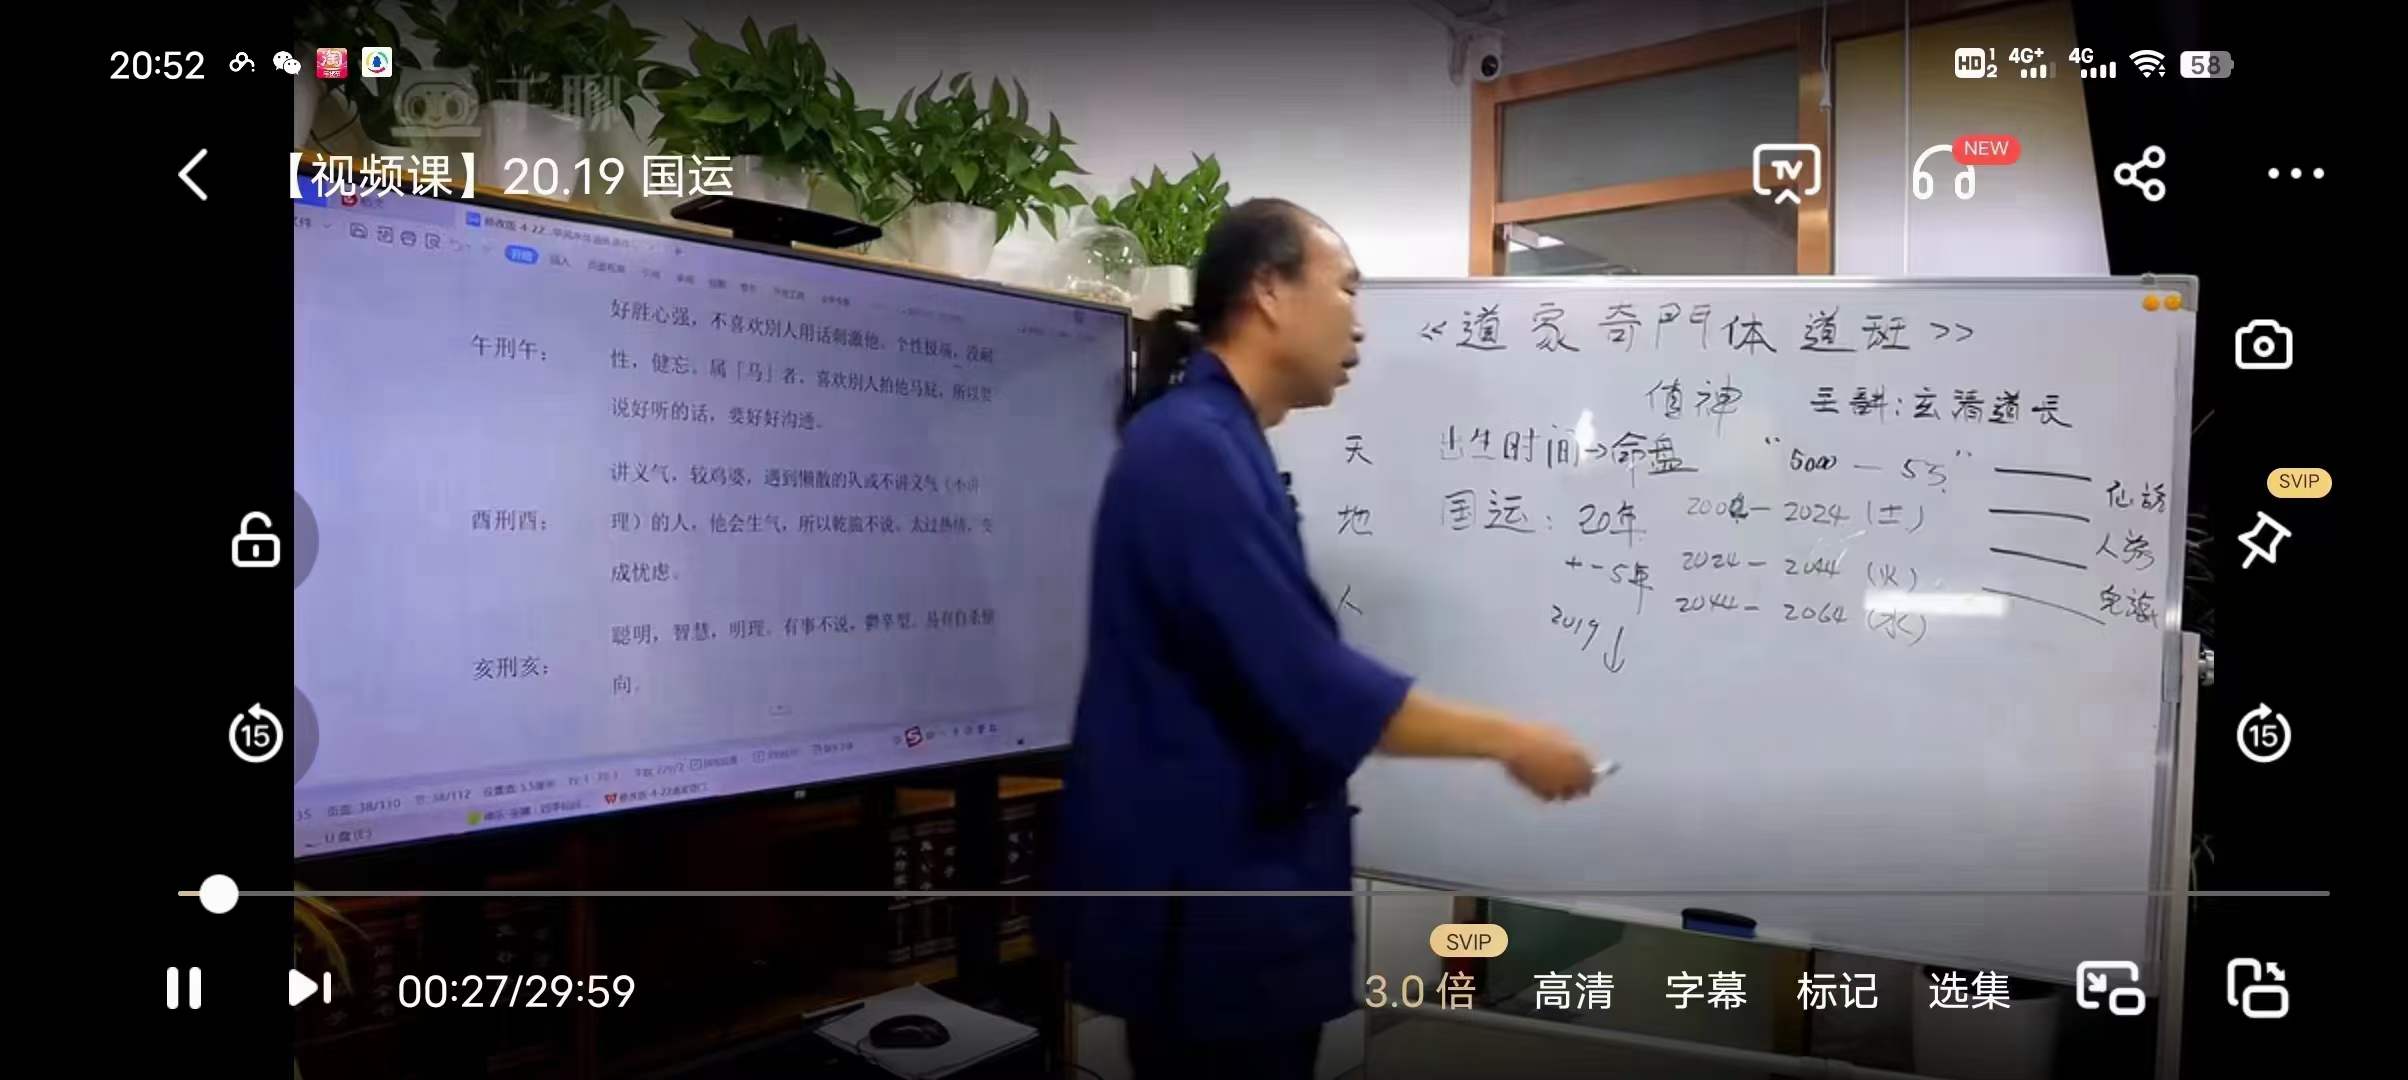 20:52
HD 1 2 4G+ 4G 58
千聊
【视频课】20.19 国运
TV
NEW
好胜心强，不喜欢别人用话刺激他。个性极端，没耐
午刑午：
性，健忘。属「马」者，喜欢别人拍他马屁，所以要
说好听的话，要好好沟通。
讲义气，较鸡婆，遇到懒散的队或不讲义气（不讲
酉刑酉：
理）的人，他会生气，所以乾脆不说。太过热情，变
成忧虑。
聪明，智慧，明理。有事不说，鬱卒型。易有自杀倾
亥刑亥：
向。
页面: 38/110
U 盘(E:)
《道家奇門体道班》
值神 主讲:玄清道长
天 出生时间→命盘 “5000 — 53”
地 国运: 20年 2004— 2024 (土)
+-5年 2024 — 2044 (火)
人 2019↓ 2044 — 2064 (水)
SVIP
15
15
00:27/29:59
SVIP
3.0 倍
高清
字幕
标记
选集